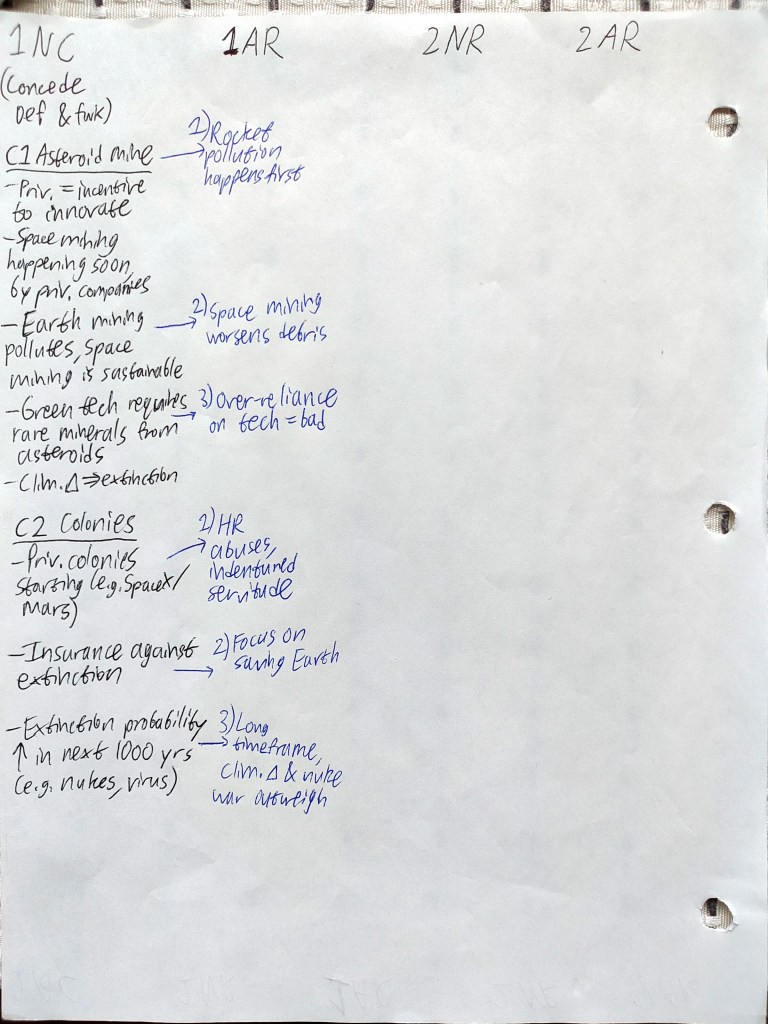 1NC 1AR 2NR 2AR
(Concede
Def & fwk)
C1 Asteroid mine
- Priv. = incentive
to innovate
- Space mining
happening soon,
by priv. companies
- Earth mining
pollutes, space
mining is sustainable
- Green tech requires
rare minerals from
asteroids
- Clim. Δ ⇒ extinction
C2 Colonies
- Priv. colonies
starting (e.g. SpaceX/
Mars)
- Insurance against
extinction
- Extinction probability
↑ in next 1000 yrs
(e.g. nukes, virus)
1) Rocket
pollution
happens first
2) Space mining
worsens debris
3) Over-reliance
on tech = bad
1) HR
abuses,
indentured
servitude
2) Focus on
saving Earth
3) Long
timeframe,
Clim. Δ & nuke
war outweigh